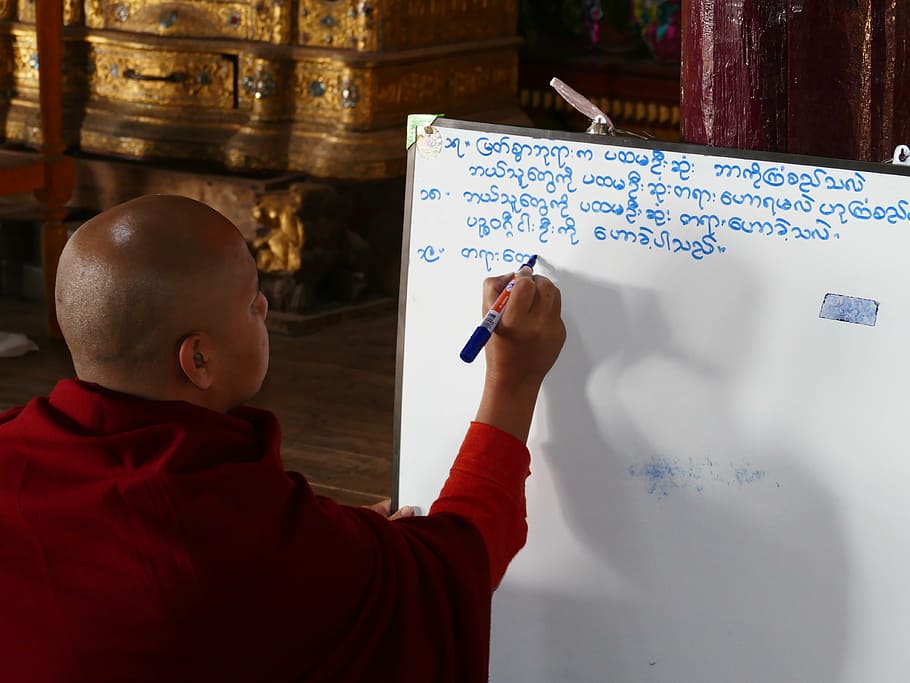 ၁၇။ မြတ်စွာဘုရားက ပထမဦးဆုံး ဘာကိုကြံစည်သလဲ
ဘယ်သူတွေကို ပထမဦးဆုံးတရားဟောရမလဲ ဟုကြံစည်
၁၈။ ဘယ်သူတွေကို ပထမဦးဆုံး တရားဟောခဲ့သလဲ။
ပဉ္စဝဂ္ဂီငါးဦးကို ဟောခဲ့ပါသည်။
၁၉။ တရားတွေ